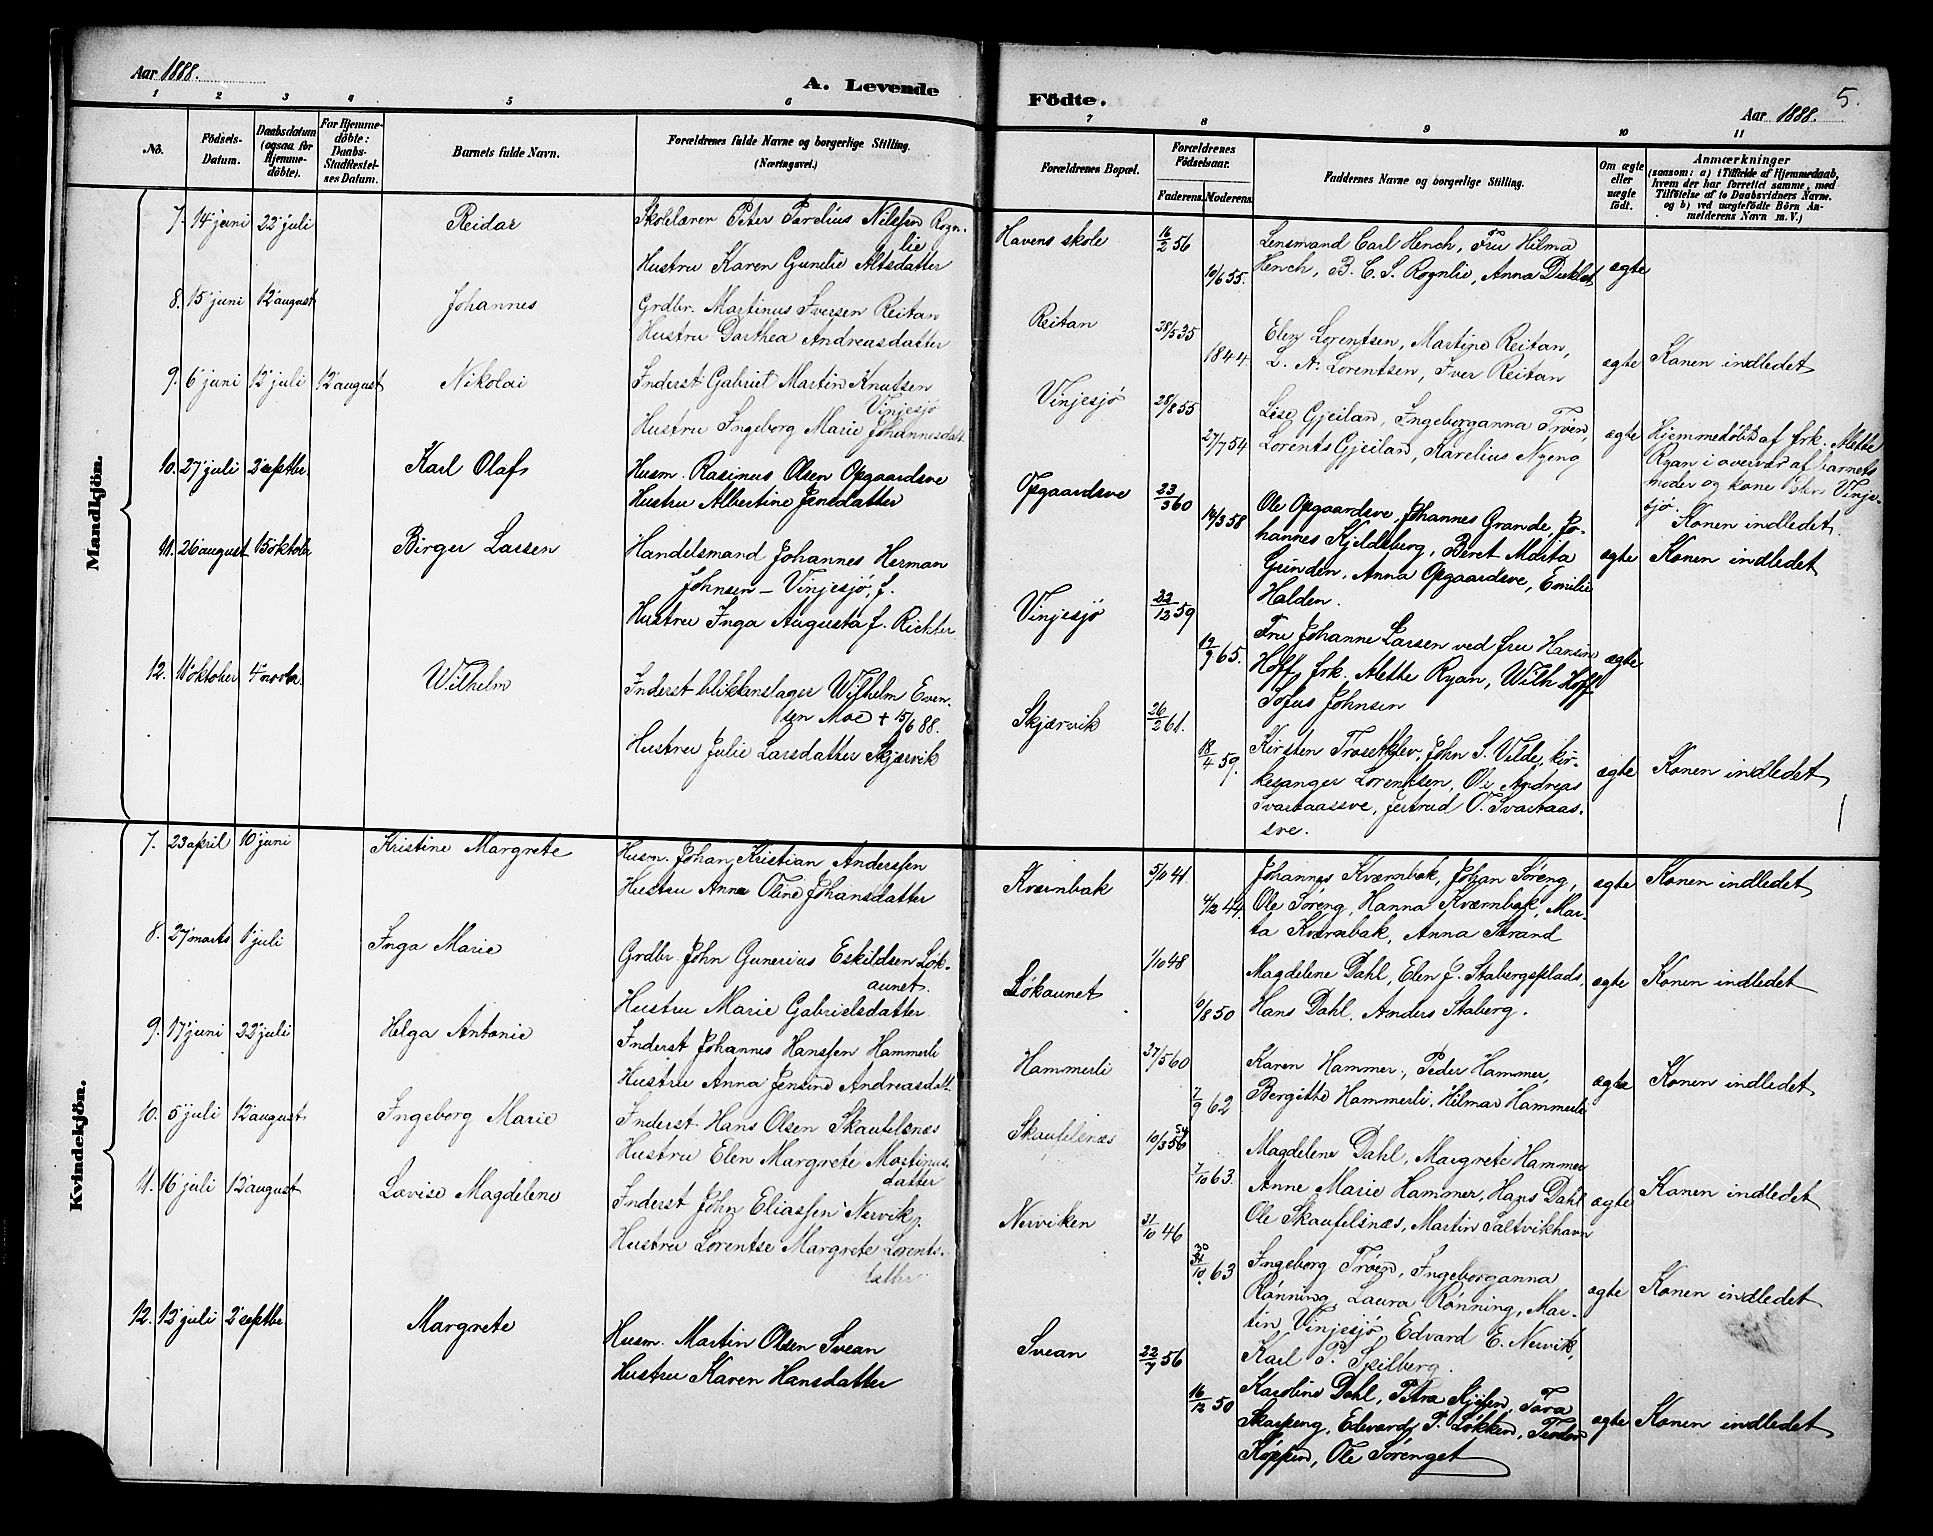 Aar 1888.
A. Levende
Födte.
Aar 1888.
5.
1 2 3 4 5 6 7 8 9 10 11
No.
Födsels-Datum.
Daabsdatum (ogsaa for Hjemmedöbte).
For Hjemmedöbte: Daabs-Stadfæstelses Datum.
Barnets fulde Navn.
Forældrenes fulde Navne og borgerlige Stilling.
(Næringsvei.)
Forældrenes Bopæl.
Forældrenes Födselsaar.
Faderens. Moderens.
Faddernes Navne og borgerlige Stilling.
Om ægte eller uægte födt.
Anmærkninger
(saasom: a) i Tilfælde af Hjemmedaab, hvem der har forrettet samme, med Tilföielse af to Daabsvidners Navne. og b) ved uægtefödte Börn Anmelderens Navn m. V.)
Mandkjön.
7. 14' juni 22' juli Reidar
Skolelærer Peter Parelius Nilssen Rogn-
lie
Hustru Karen Gunelie Altsdatter
Havens skole 16/2 56 10/6 55.
Lensmand Carl Hench, Fru Hilma
Hench, B. C. S. Rognlie, Anna
ægte
8. 15' juni 12' august Johannes
Grdbr. Martinus Iversen Reitan
Hustru Dorthea Andreasdatter
Reitan 28/5 35 1844.
Elen Lorentsen, Martine Reitan,
L. A. Lorentsen, Iver Reitan
ægte Konen indledet
9. 6' juni 12' juli 12' august Nikolai
Inderst Gabriel Martin Knutsen
Vinjesjö
Hustru Ingeborg Marie Johannesdatt.
Vinjesjö 28/8 55 27/7 54
Lise Gjeilan, Ingeborganna Tröen,
Lorents Gjeilan, Karelius Nyeng
ægte Hjemmedöbt af frk. Alette
Ryan i overvær af barnets
moder og kone Vinje-
sjö. Konen indledet.
10. 27' juli 2' septbr. Karl Olaf
Husm. Rasinus Olsen Opgaardsve
Hustru Albertine Jensdatter
Opgaardsve 23/3 60 14/3 58
Ole Opgaardsve, Johannes Grande, Jo-
hannes Kjeldsberg, Beret Marta
Grinden, Anna Opgaardsve, Emilie
Halden.
ægte Konen indledet
11. 26' august 15' oktober Birger Lassen
Handelsmand Johannes Herman
Johnsen – Vinjesjö, f.
Hustru Inga Augusta f. Richter
Vinjesjö 22/12 59 19/9 65.
Fru Johanne Larsen ved fru Hansine
Hoff, frk. Alette Ryan, Wilh. Hoff
Sofus Johnsen
ægte
12. 10' oktober 4' novbr. Wilhelm
Inderst blikkenslager Wilhelm Even-
sen Moe + 15/6 88.
Hustru Julie Larsdatter Skjærvik
Skjærvik 26/2 61. 18/4 59.
Kirsten Trosetklev, John S. Vilde, kir-
kesanger Lorentsen, Ole Andreas
Svartaassve, Jertrud O. Svartaas-
sve.
ægte Konen indledet
Kvindekjön.
7. 23 april 10' juni Kristine Margrete
Husm. Johan Kristian Anderssen
Hustru Anna Oline Johansdatter
Kvernbak 5/10 41 4/2 44.
Johannes Kvernbak, Johan Söreng,
Ole Söreng, Hanna Kvernbak, Mar-
ta Kvernbak, Anna Strand
ægte Konen indledet
8. 27' marts 1' juli Inga Marie
Grdbr. John Gunerius Eskildsen Lök-
aunet.
Hustru Marie Gabrielsdatter.
Lökaunet 1/10 48 6/8 50
Magdelene Dahl, Elen J. Stabergsplads,
Hans Dahl, Anders Staberg.
ægte Konen indledet
9. 17' juni 22' juli Helga Antonie
Inderst Johannes Hanssen Hammerli
Hustru Anna Jensine Andreasdatt.
Hammerli 27/5 60 7/9 62
Karen Hammer, Peder Hammer,
Bergitte Hammerli, Hilmar Hammerli
ægte Konen indledet
10. 5' juli 12' august Ingeborg Marie
Inderst Hans Olsen Skaufelsnæs
Hustru Elen Margrete Martinus-
datter
Skaufelsnæs 10/3 56 54 7/10 63.
Magdelene Dahl, Margrete Hammer
Anne Marie Hammer, Hans Dahl
Ole Skaufelsnæs, Martin Saltvikhavn
ægte Konen indledet
11. 16' juli 12' august Lovise Magdelene
Inderst John Eliassen Nervik,
Hustru Lorentse Margrete Lorents-
datter
Nerviken 31/10 46 30/10 63
Ingeborg Tröen, Ingeborganna
Rönning, Laura Rönning, Mar-
tin Vinjesjö, Edvard E. Nervik,
Karl P. Spilberg.
ægte Konen indledet
12. 12' juli 2' septbr. Margrete
Husm. Martin Olsen Svean
Hustru Karen Hansdatter
Svean 22/7 56 16/12 50
Karoline Dahl, Petra Kjelen, Tora
Skarpeng, Edvard P. Lökken, Teodor
Köppen, Ole Sörenget
ægte Konen indledet